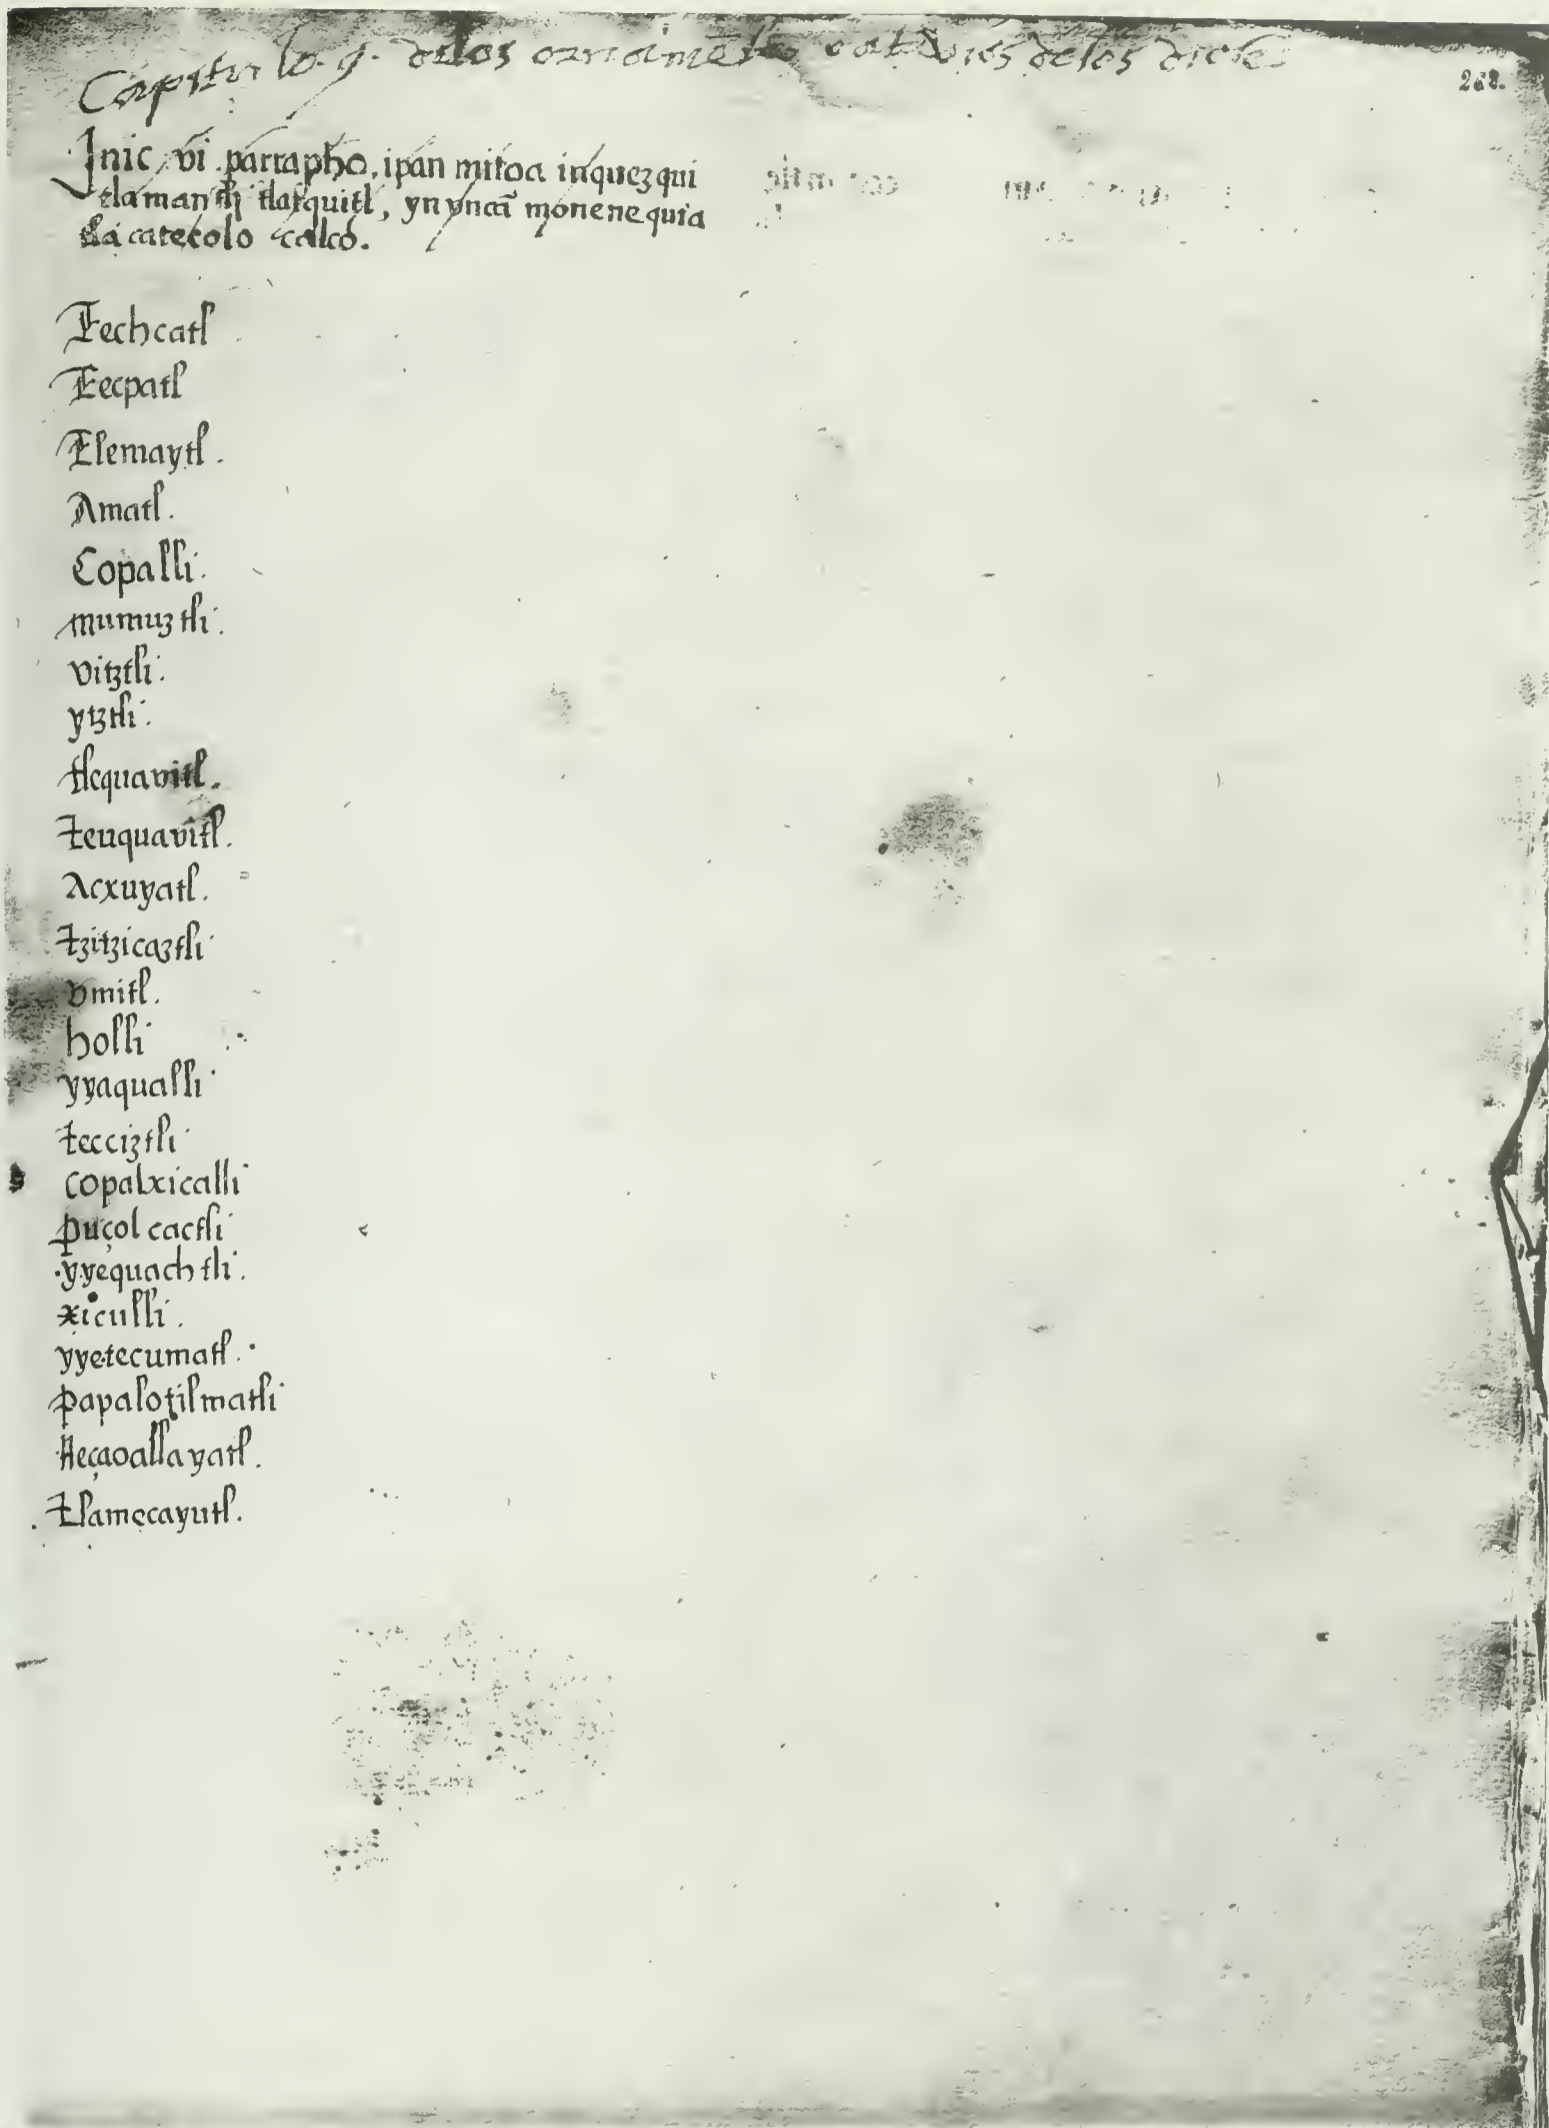 Capitulo .9. de los ornamẽtos o atavios de los diose
268.
Jnic vi parrapho, ipan mitoa inquezqui
tlamantli tlatquitl, yn vncã monenequia
tlacatecolo calco.
Techcatl
Tecpatl
Tlemaytl.
Amatl.
Copalli.
mumuztli.
vitztli.
ytztli.
tlequavitl.
teuquavitl.
Acxuyatl.
tzitzicaztli
vmitl.
holli
yyaqualli
tecciztli
copalxicalli
puçolcactli
yyequachtli.
xiculli.
yyetecumatl.
papalotilmatli
neçaoallayatl.
Tlamecayutl.